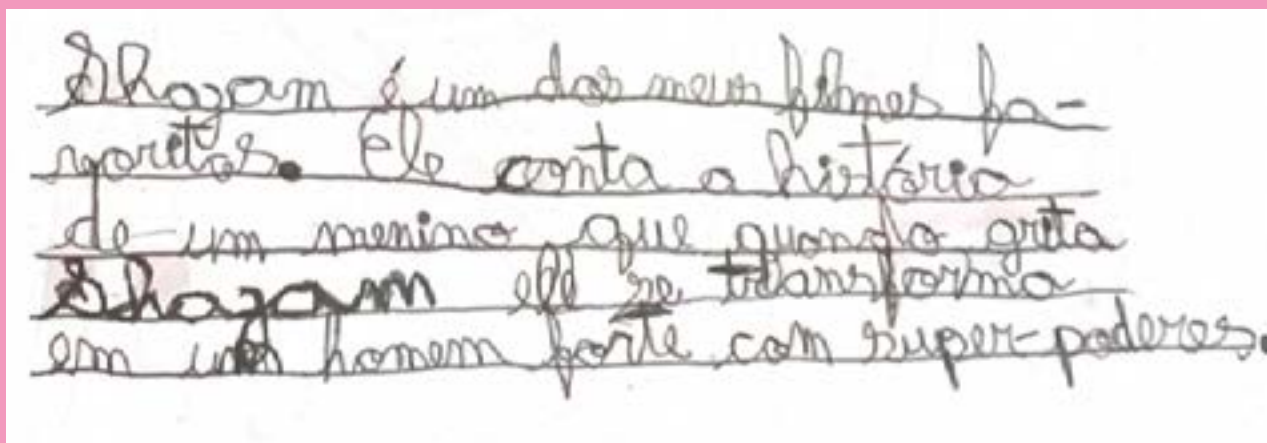 Shazam é um dos meus filmes fa-
voritos. Ele conta a história
de um menino que quando grita
Shazam ele se transforma
em um homem forte com super-poderes.